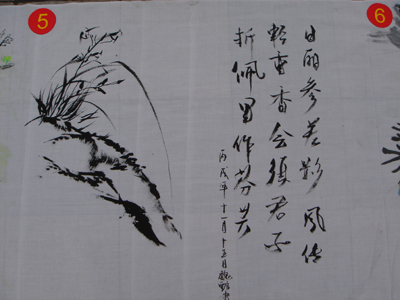 5
6
日丽参差影 风传
轻重香会须君子
折佩里作芬芳
丙戌年十一月十五日